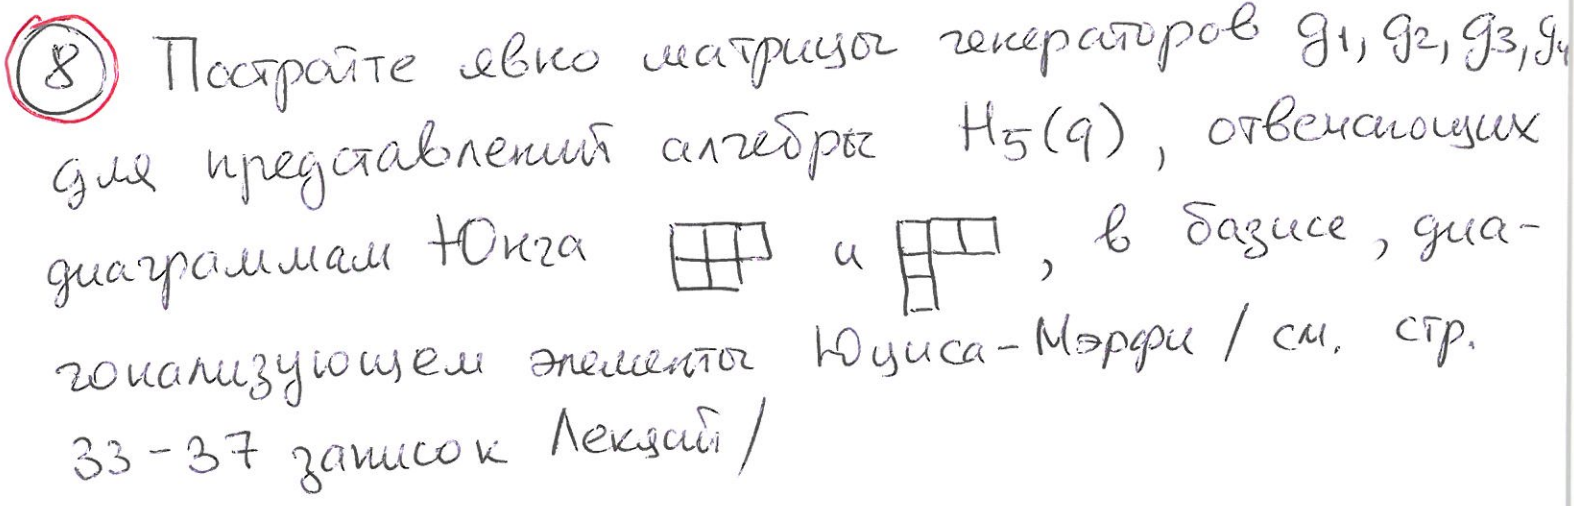 8 Постройте явно матрицы генераторов g1, g2, g3, g4
для представлений алгебры H5(q), отвечающих
диаграммам Юнга и , в базисе, диа-
гонализующем элементы Юциса-Мэрфи / см. стр.
33-37 записок Лекций /